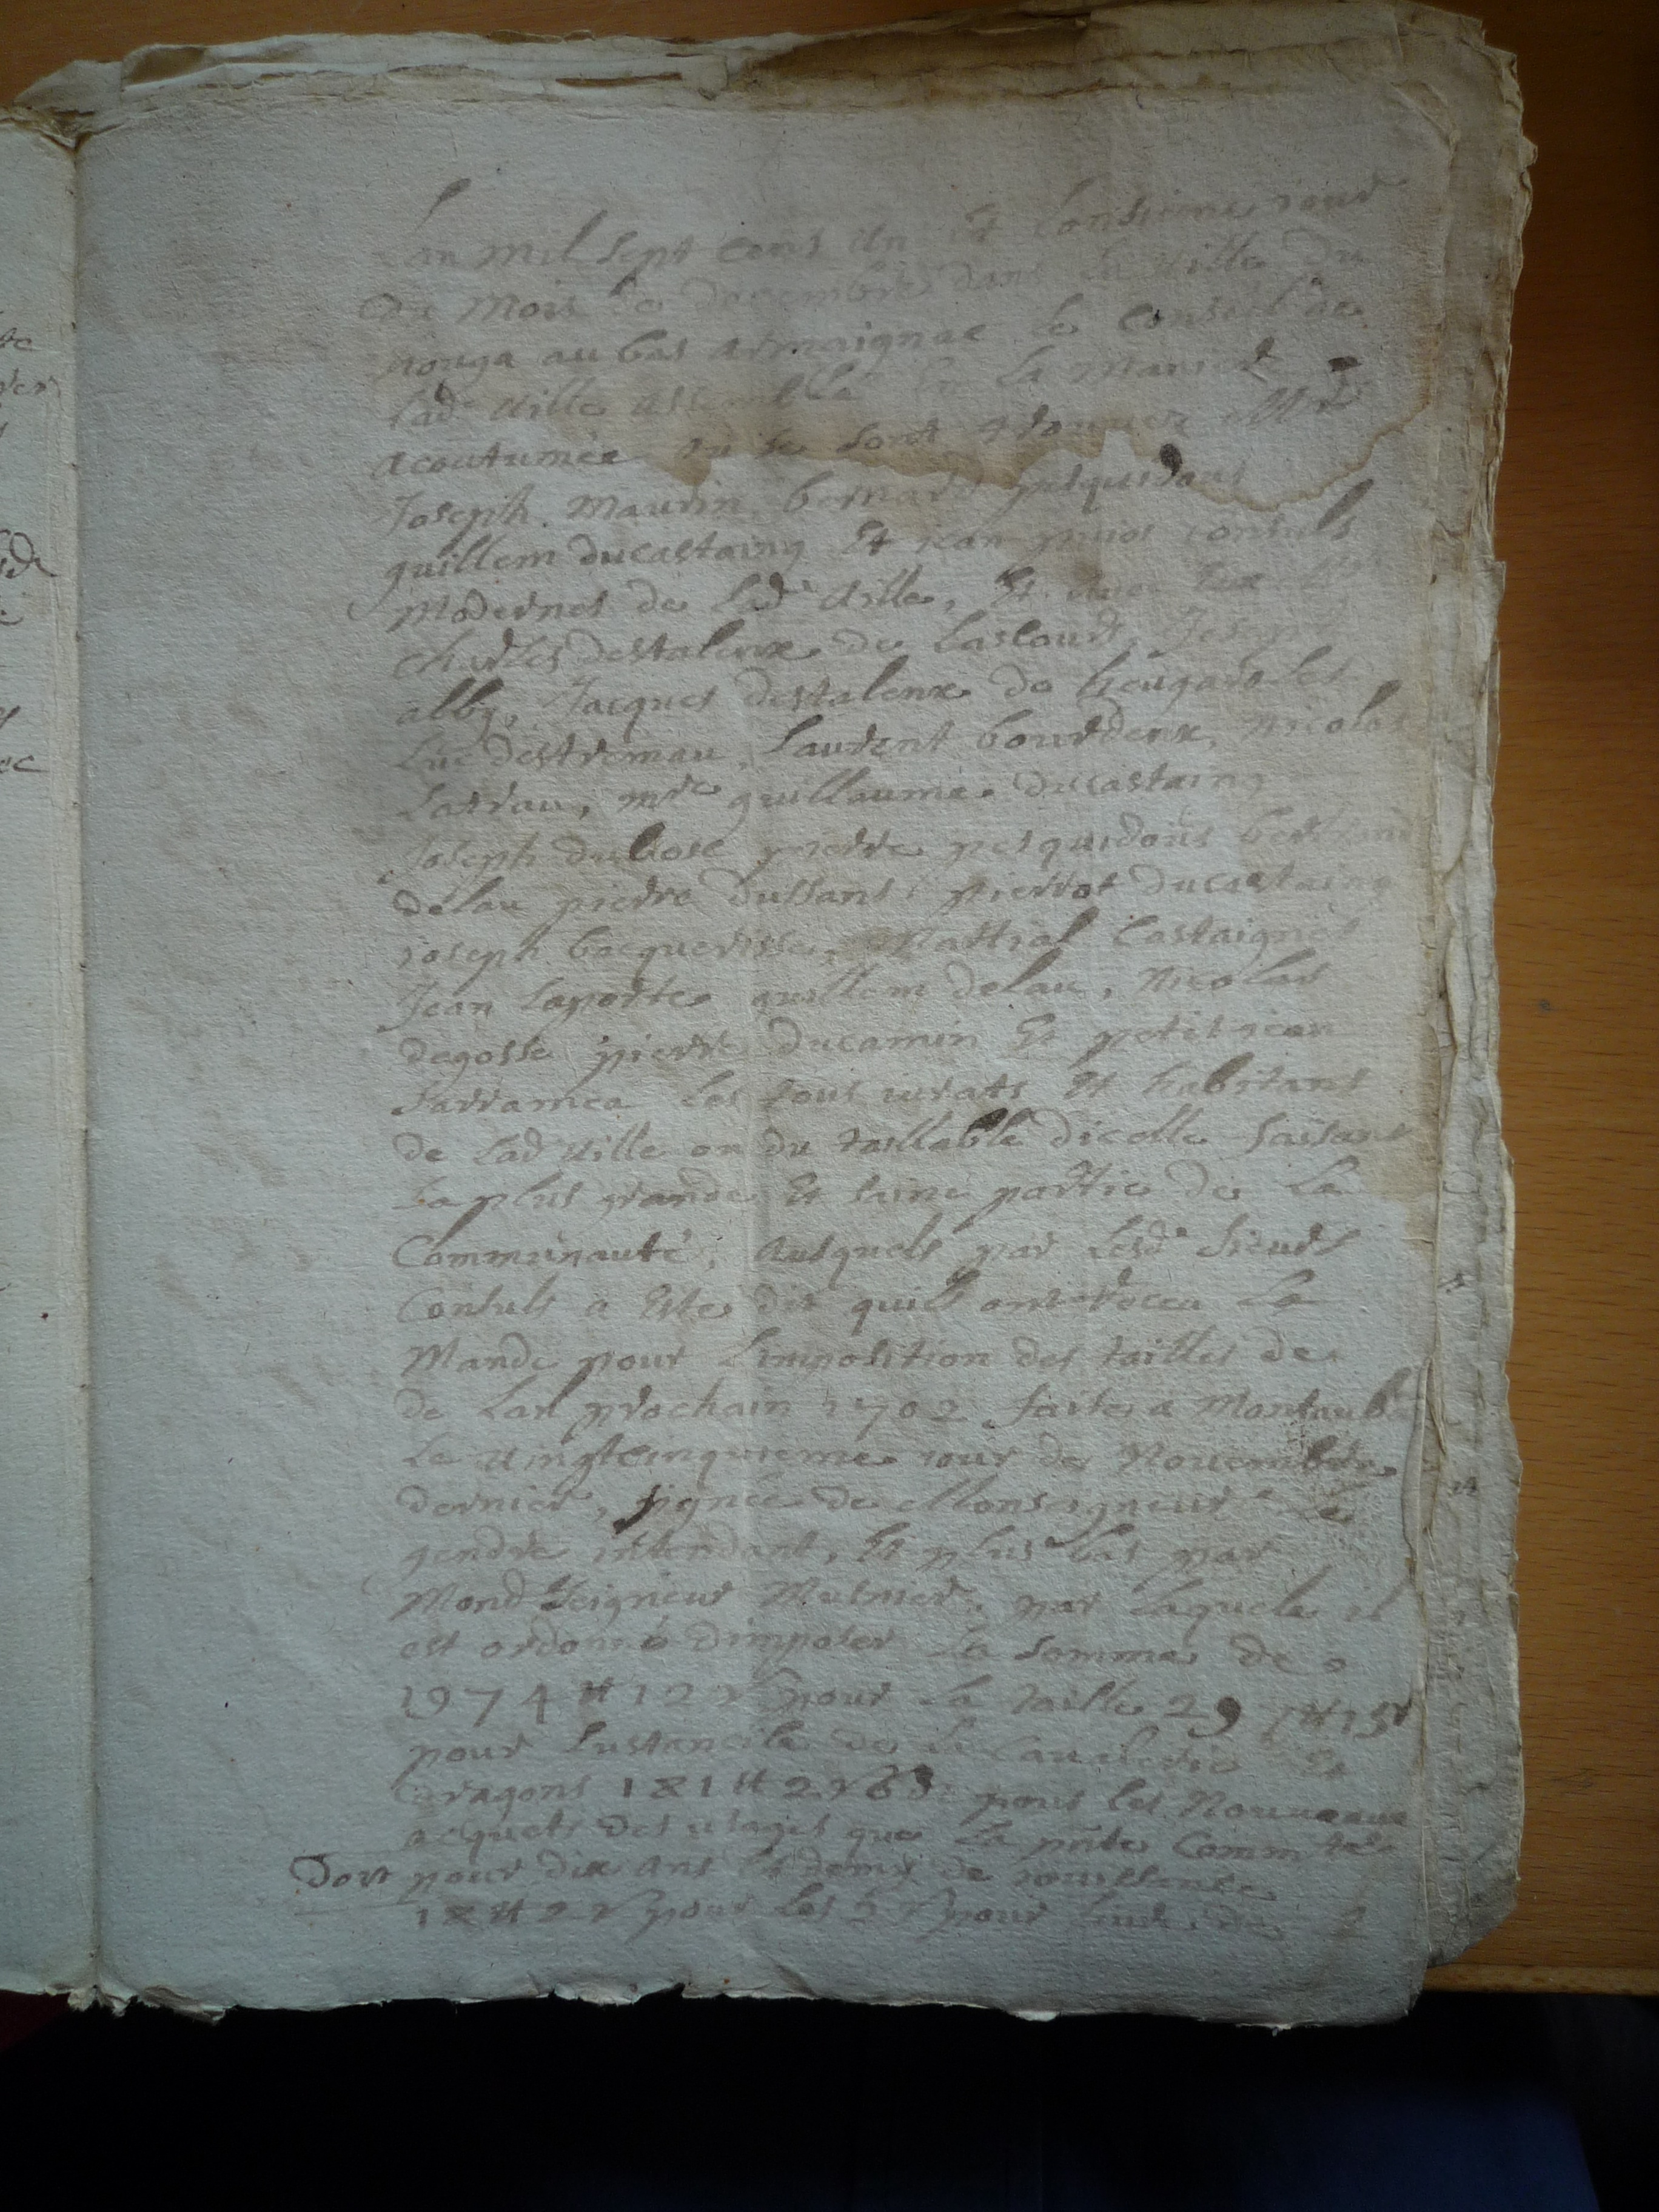 Lan mil sept cens un et lonsieme jour
du mois de decembre dans la ville du
nouga au bas armaignac le conseil de
lad ville assemblé en la maniere
acoutumée ou se sont trouver Mrs
Joseph Maurin bernard pesquidous
guillem ducastaing et jean puios consuls
modernes de lad ville, et avec eux
charles destalenx de Lascourt, Joseph
alby, Jacques destalenx de
Luc destremau, Laurent bourdeux, nicolas
Latrau, mre guillaume ducastaing
Joseph dubosc pierre pesquidous
delau pierre dussans pierrot ducastaing
joseph bacquerisse, Martial Castaignet
Jean Laporte guillem delau, Nicolas
dagosse pierre ducamin et petit jean
Farramea les tous jurats et habitans
de Lad ville ou du taillable dicelle faisant
La plus grande et saine partie de la
Communauté, Ausquels par lesd sieurs
Consuls a este dit quils ont receu la
Mande pour Limposition des tailles de
de Lan prochain 1702 faite a Montauba
Le vingtcinquieme jour de Novembre
dernier, signée de Monseigneur Le
gendre intendant, et plus bas par
Mond Seigneur Mesnier, par Laquele il
est ordonné dimposer la somme de
1974 tt 12 s pour la taille 29
pour Lustancile de la Cavalerie et
dragons 181 tt 2 s 6 d pour les Nouveaux
acquets des usages que la pnte Commte
Dort pour dix ans et demy de jouissance
18 tt 2 s pour les 2 s pour